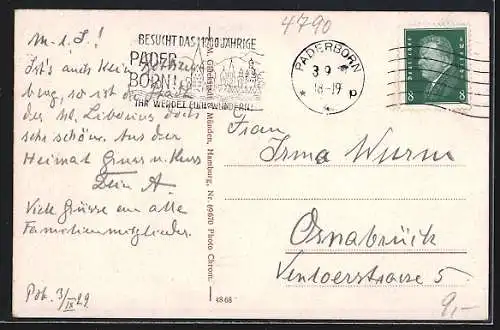 4790
M. l. J.!
Ist's auch kein
berg, so ist die Stadt
des hl. Liborius doch
sehr schön. Aus der
Heimat Gruss u. Kuss
Dein A.
Viele Grüsse an alle
Familienmitglieder.
Pdb. 3/IX 29
BESUCHT DAS 1200 JÄHRIGE
PADER
BORN!
IHR WERDET EUCH WUNDERN!
PADERBORN
3 9
18-19
* P
Deutsches Reich
8 8
Frau
Irma Wurm
Osnabrück
5
Münden, Hamburg, Nr. 69670 Photo Chrom.
4868
9,-